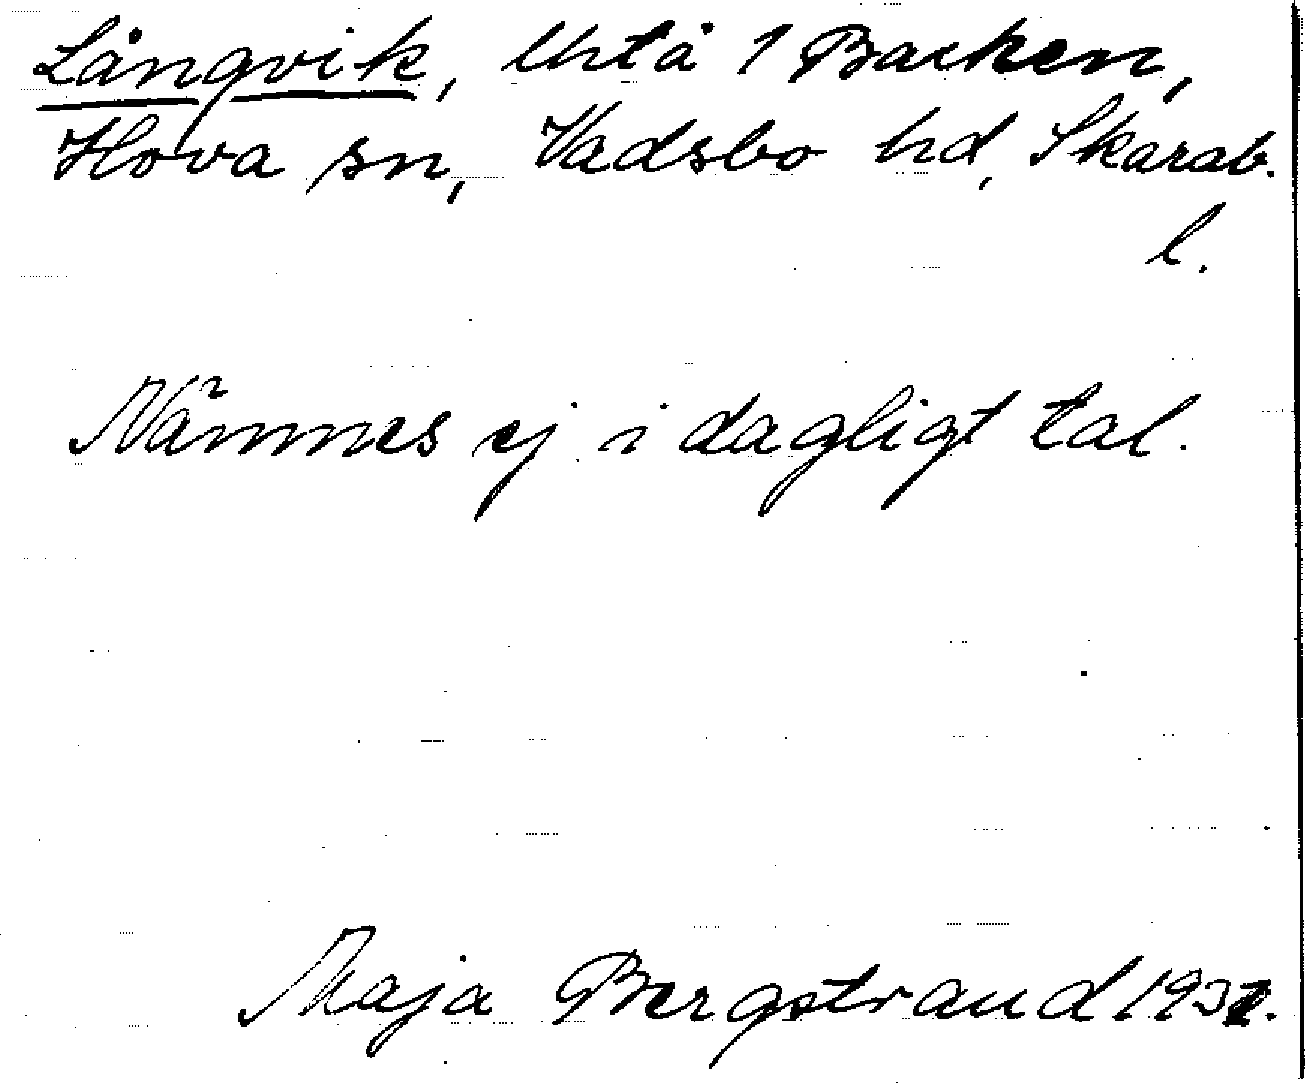 Långvik, Urtå 1 Backen,
Hova sn, Vadsbo hd, Skarab.
l.
Nämnes ej i dagligt tal.
Maja Bergstrand